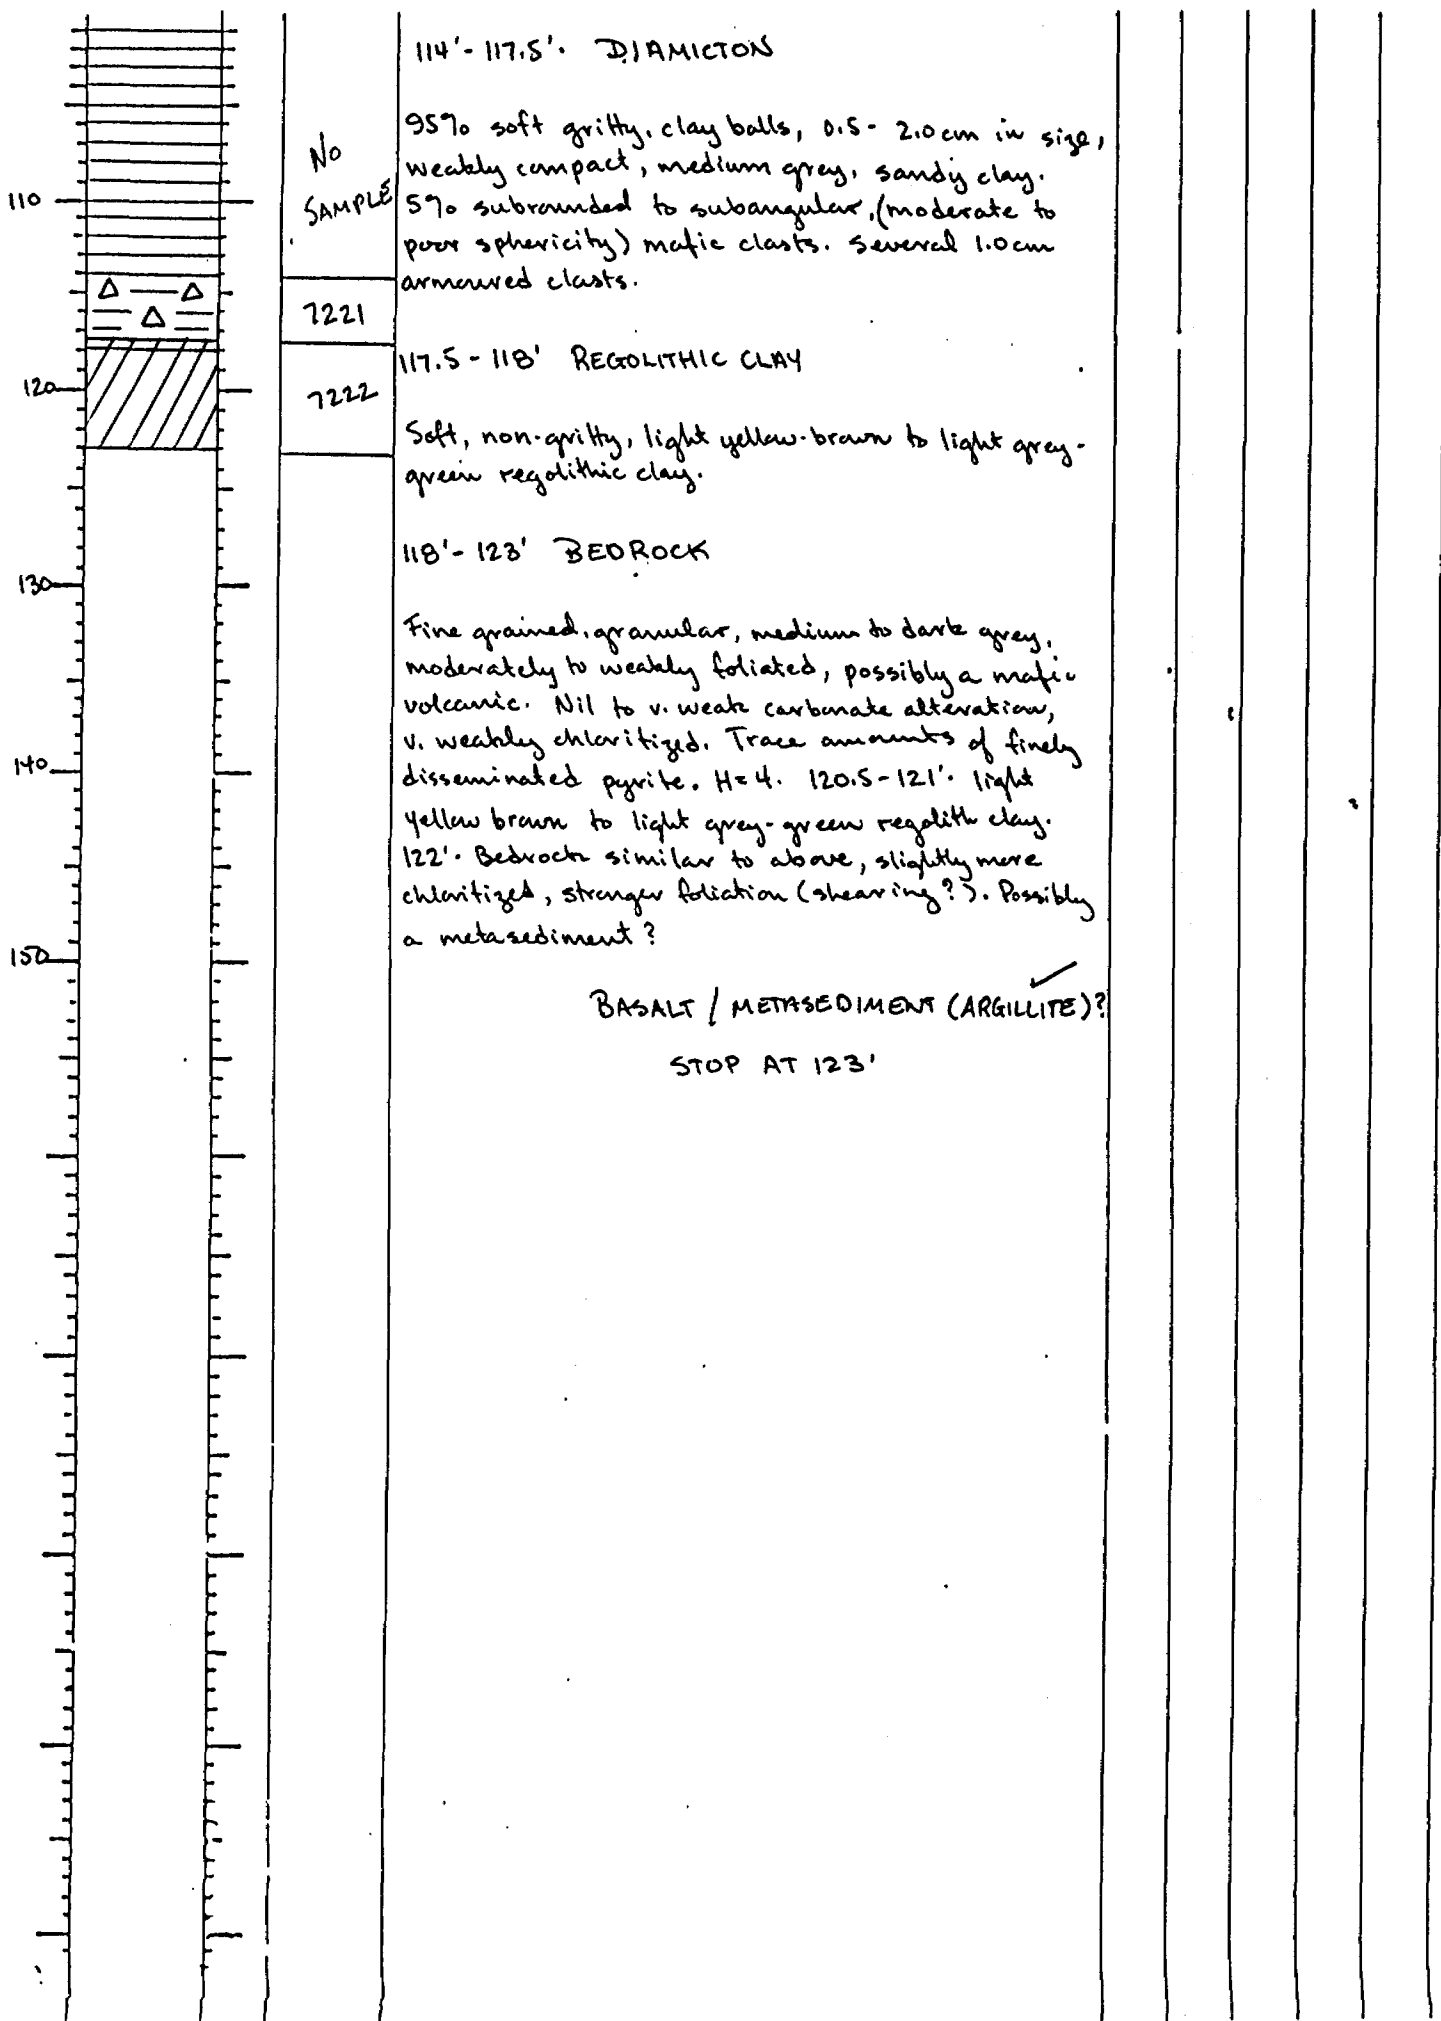 114'-117.5'. DIAMICTON
95% soft gritty, clay balls, 0.5-2.0cm in size,
weakly compact, medium grey, sandy clay.
5% subrounded to subangular, (moderate to
poor sphericity) mafic clasts. Several 1.0cm
armoured clasts.
NO
SAMPLE
110
7221
117.5-118' REGOLITHIC CLAY
120
7222
Soft, non-gritty, light yellow-brown to light grey-
green regolithic clay.
118'-123' BEDROCK
130
Fine grained, granular, medium to dark grey,
moderately to weakly foliated, possibly a mafic
volcanic. Nil to v. weak carbonate alteration,
v. weakly chloritized. Trace amounts of finely
140
disseminated pyrite. H=4. 120.5-121'. light
yellow brown to light grey-green regolith clay.
122'. Bedrock similar to above, slightly more
chloritized, stronger foliation (shearing?). Possibly
a metasediment?
150
BASALT / METASEDIMENT (ARGILLITE)?
STOP AT 123'